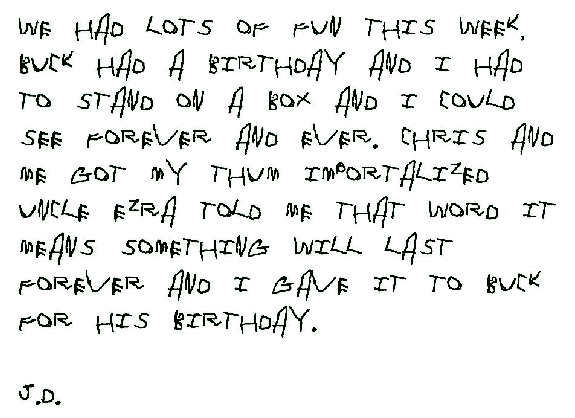 WE HAD LOTS OF FUN THIS WEEK.
BUCK HAD A BIRTHDAY AND I HAD
TO STAND ON A BOX AND I COULD
SEE FOREVER AND EVER. CHRIS AND
ME GOT MY THUM IMPORTALIZED
UNCLE EZRA TOLD ME THAT WORD IT
MEANS SOMETHING WILL LAST
FOREVER AND I GAVE IT TO BUCK
FOR HIS BIRTHDAY.
J.D.